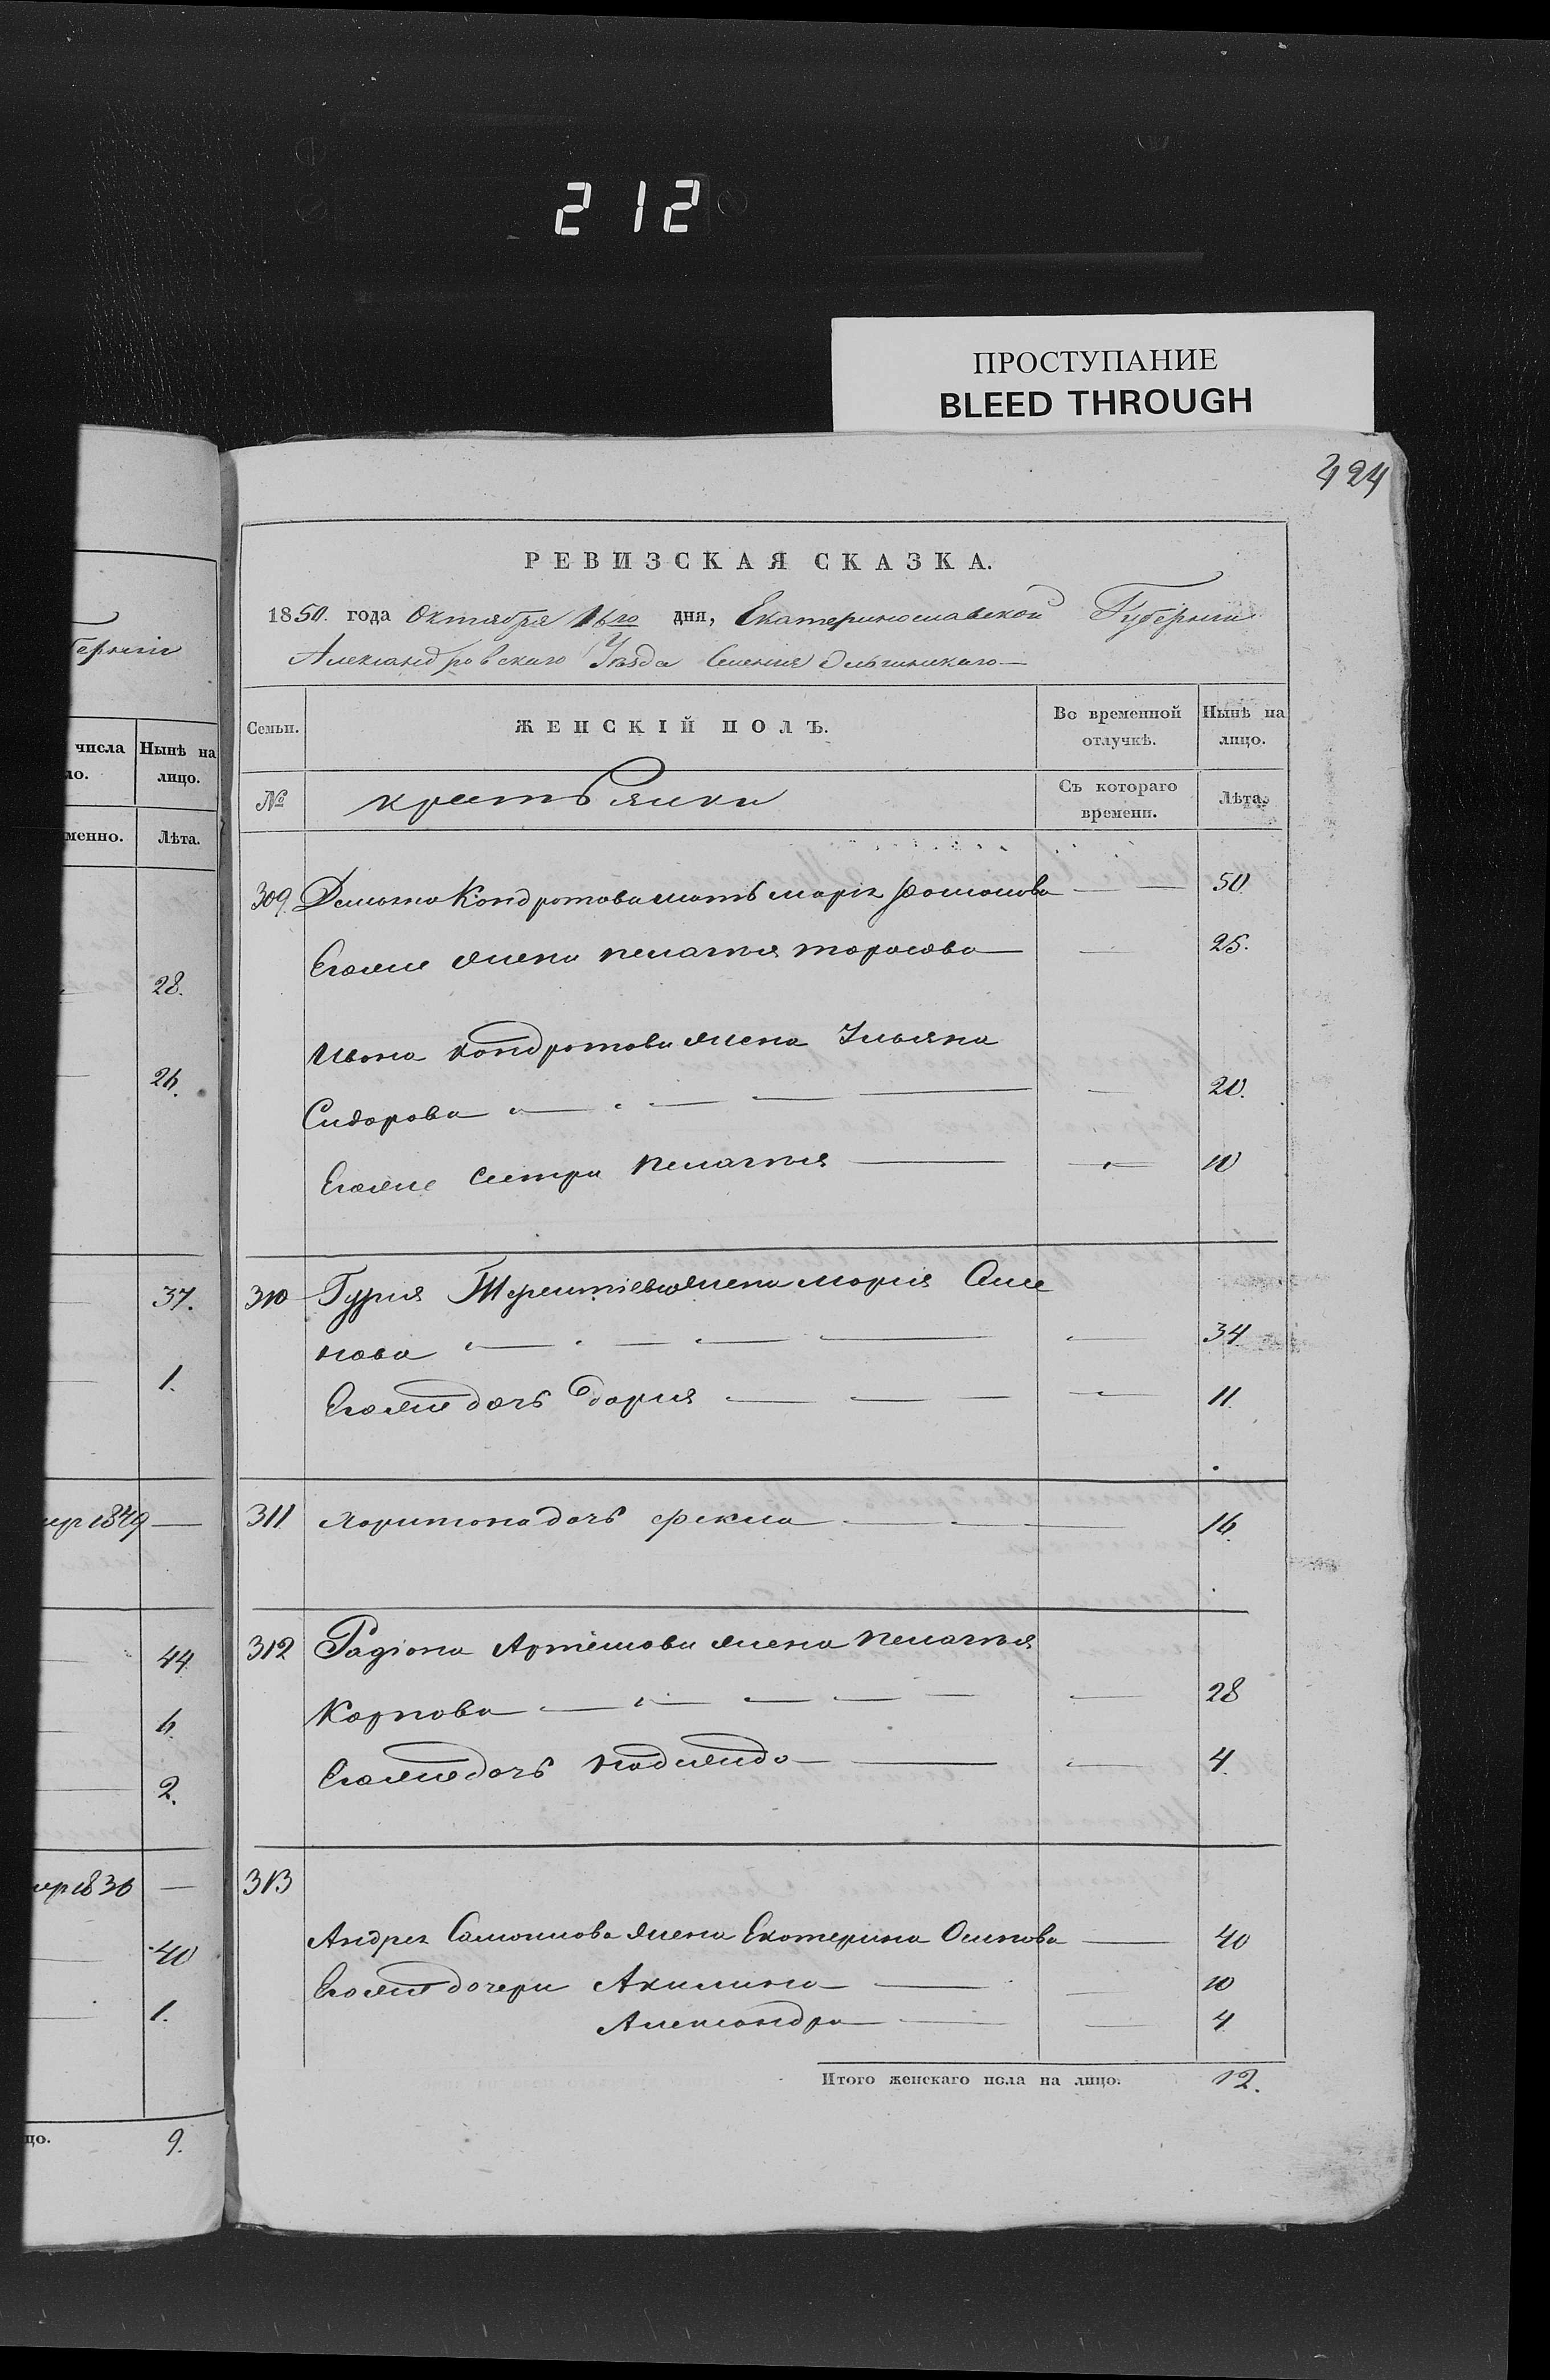 212
ПРОСТУПАНИЕ
BLEED THROUGH
424
РЕВИЗСКАЯ СКАЗКА.
1850. года Октября 16го дня, Екатеринославской Губерніи
Александровскаго Уѣзда Селенія
Семьи.
ЖЕНСКІЙ ПОЛЪ.
Во временной отлучкѣ.
Нынѣ на лицо.
№
крестьянки
Съ котораго времени.
Лѣта.
309. Кондротова мать Марія 50
Егоже жена Пелагия Торасова 25.
Ивона Кондротова жена Ульяна
Сидорова 20.
Егоже сестра Пелагия 10
310 Гурия Терентіева жена Мория Семе
нова 34
Егоже дочь Дария 11
311 Хоритона дочь Фекла 16.
312 Радіона Артёмова жена Пелагия
Корпова 28
Егоже дочь Надежда 4.
313
Андрея Самойлова жена Екотерина Осипова 40
Егоже дочери Акилина 10
Александра 4
Итого женскаго пола на лицо. 12.
берніи
числа
ло.
Нынѣ на лицо.
менно.
Лѣта.
28.
26.
37.
1.
1849
44
6.
2.
1836
40
1.
цо. 9.